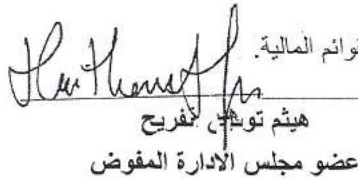 قوائم المالية.
هيثم توفيق تفريح
عضو مجلس الادارة المفوض